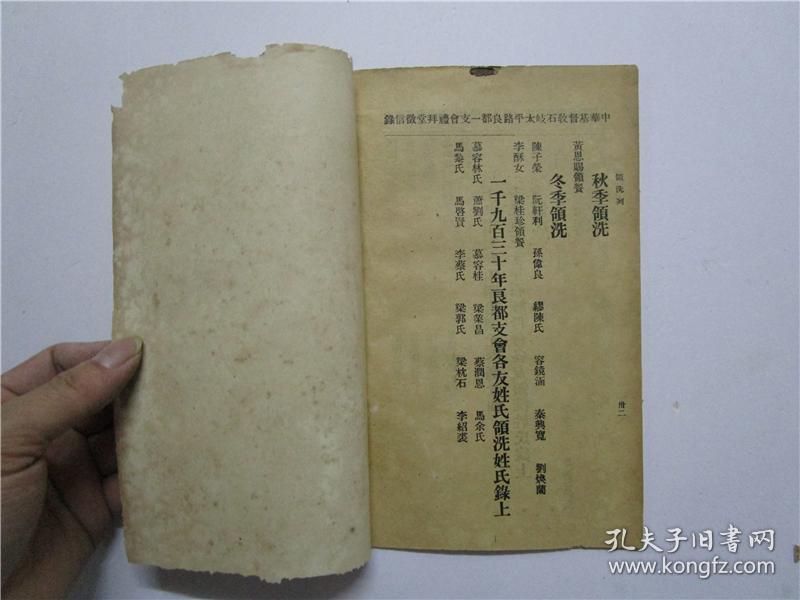 中華基督教石岐太平路良都一支會禮拜堂徵信錄
領洗列
卅二
秋季領洗
黃恩賜領餐
冬季領洗
陳子榮 阮軒利 孫偉良 繆陳氏 容鏡涵 秦興寬 劉煥蘭
李酥女 梁桂珍領餐
一千九百三十年良都支會各友姓氏領洗姓氏錄上
慕容林氏 蕭劉氏 慕容桂 梁榮昌 蔡潤恩 馬余氏
馬鄭氏 馬啓賢 李蔡氏 梁郭氏 梁杭石 李紹裘
孔夫子旧书网
www.kongfz.com